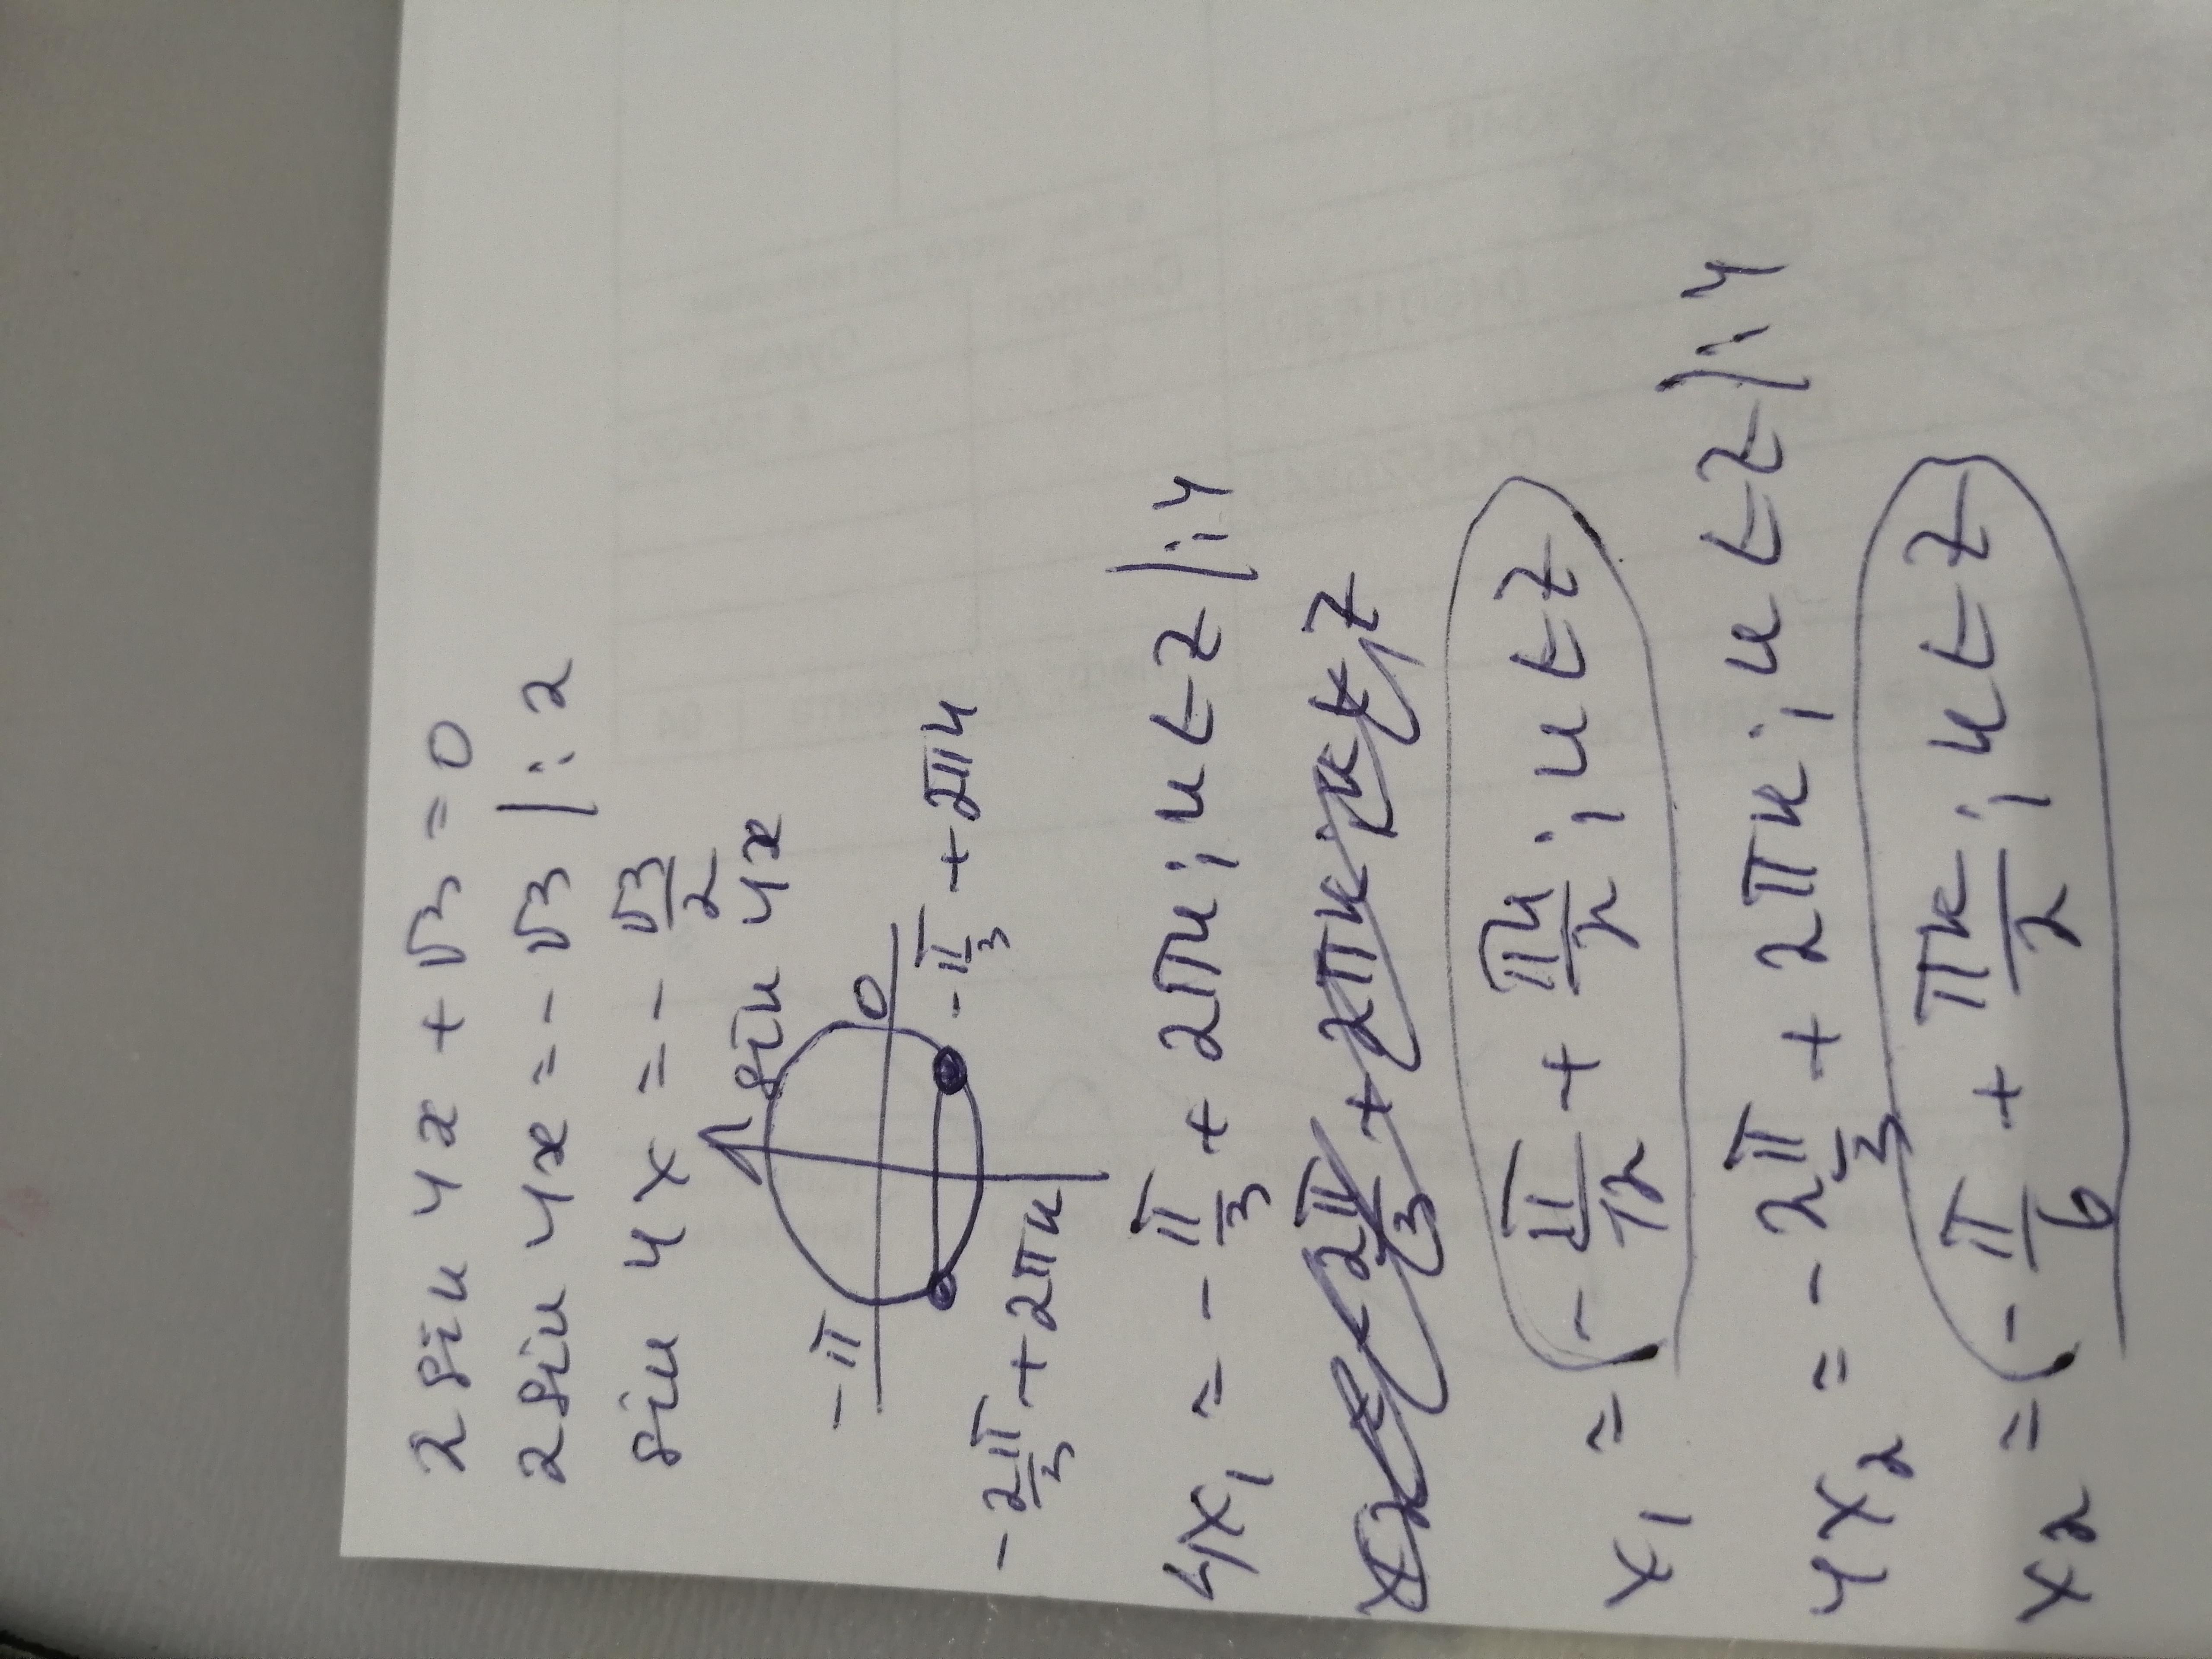 2 sin 4x + √3 = 0
2 sin 4x = - √3 |: 2
sin 4x = - √3/2
sin 4x
-π 0
-2π/3 + 2πк -π/3 + 2πк
4x₁ = - π/3 + 2πк; к ∈ Z |: 4
x₁ = - π/12 + πк/2; к ∈ Z
4x₂ = - 2π/3 + 2πк; к ∈ Z |: 4
x₂ = - π/6 + πк/2; к ∈ Z